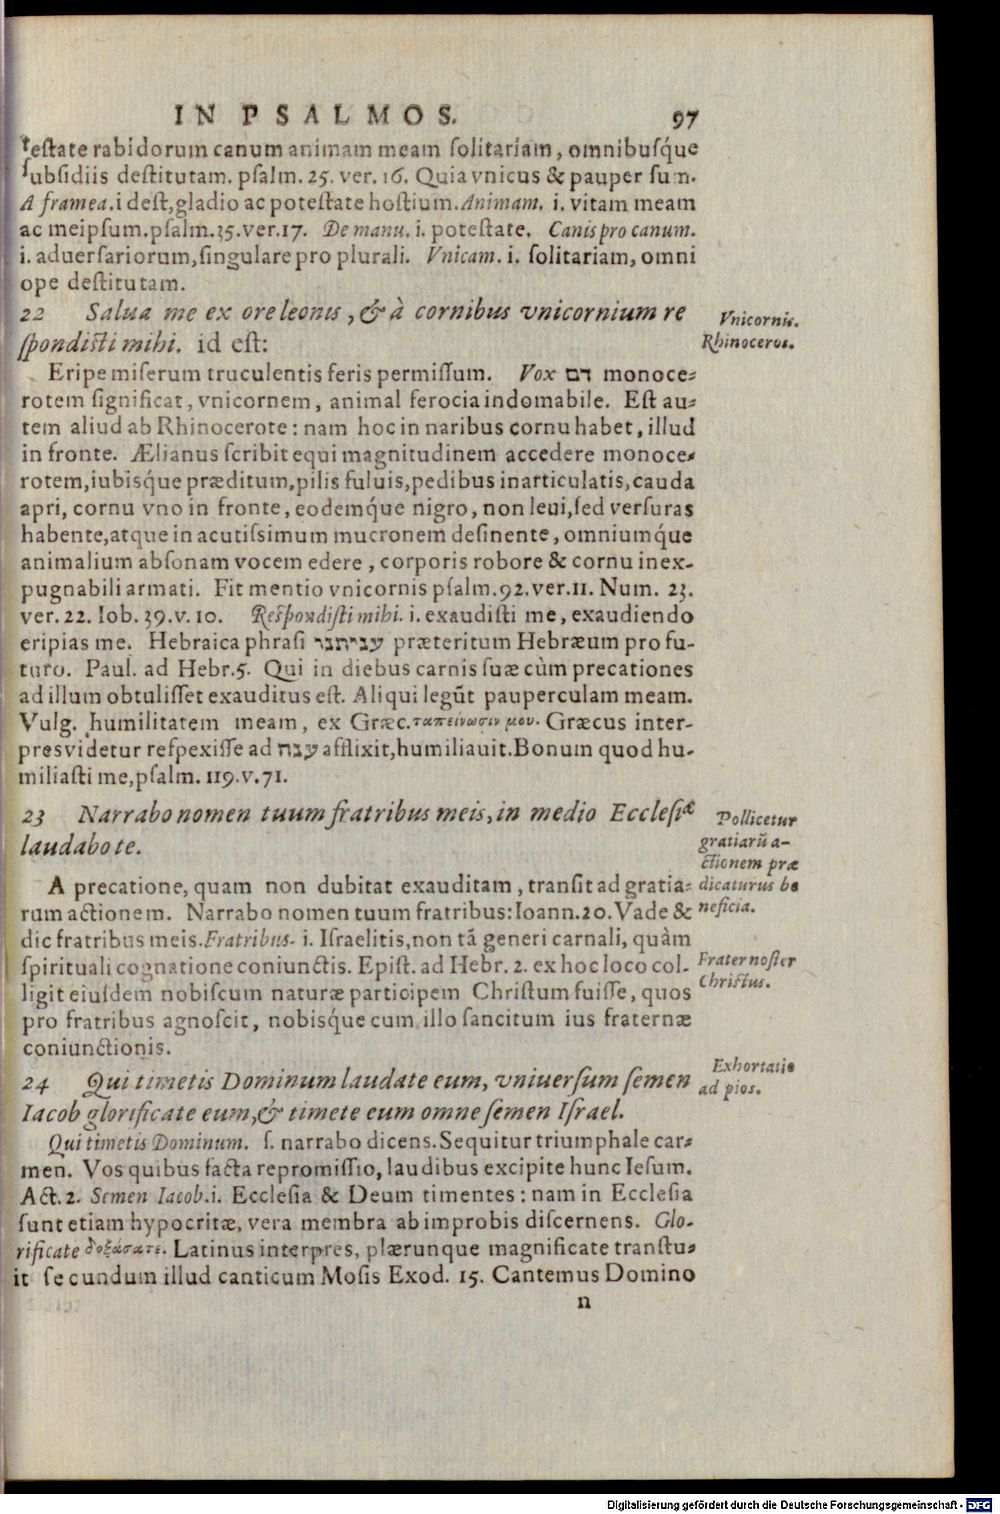 IN PSALMOS. 97
testate rabidorum canum animam meam ſolitariam, omnibuſq́ue
ſubſidiis deſtitutam. pſalm. 25. ver. 16. Quia vnicus & pauper ſum.
A framea. i deſt, gladio ac poteſtate hoſtium. Animam. i. vitam meam
ac meipſum. pſalm. 35. ver. 17. De manu. i. poteſtate. Canis pro canum.
i. aduerſariorum, ſingulare pro plurali. Vnicam. i. ſolitariam, omni
ope deſtitutam.
22 Salua me ex ore leonis, & à cornibus vnicornium re
ſpondiſti mihi. id eſt:
Vnicornis.
Rhinoceros.
Eripe miſerum truculentis feris permiſſum. Vox רם monoce-
rotem ſignificat, vnicornem, animal ferocia indomabile. Eſt au-
tem aliud ab Rhinocerote: nam hoc in naribus cornu habet, illud
in fronte. Ælianus ſcribit equi magnitudinem accedere monoce-
rotem, iubiſq́ue præditum, pilis fuluis, pedibus inarticulatis, cauda
apri, cornu vno in fronte, eodemq́ue nigro, non leui, ſed verſuras
habente, atque in acutiſsimum mucronem deſinente, omniumq́ue
animalium abſonam vocem edere, corporis robore & cornu inex-
pugnabili armati. Fit mentio vnicornis pſalm. 92. ver. 11. Num. 23.
ver. 22. Iob. 39. v. 10. Reſpondiſti mihi. i. exaudiſti me, exaudiendo
eripias me. Hebraica phraſi עניתנו præteritum Hebræum pro fu-
turo. Paul. ad Hebr. 5. Qui in diebus carnis ſuæ cùm precationes
ad illum obtuliſſet exauditus eſt. Aliqui legūt pauperculam meam.
Vulg. humilitatem meam, ex Græc. ταπείνωσιν μου. Græcus inter-
pres videtur reſpexiſſe ad ענה afflixit, humiliauit. Bonum quod hu-
miliaſti me, pſalm. 119. v. 71.
23 Narrabo nomen tuum fratribus meis, in medio Eccleſiæ
laudabo te.
Pollicetur
gratiarū a-
ctionem præ
dicaturus be
neficia.
A precatione, quam non dubitat exauditam, tranſit ad gratia-
rum actionem. Narrabo nomen tuum fratribus: Ioann. 20. Vade &
dic fratribus meis. Fratribus. i. Iſraelitis, non tā generi carnali, quàm
ſpirituali cognatione coniunctis. Epiſt. ad Hebr. 2. ex hoc loco col-
ligit eiuſdem nobiſcum naturæ participem Chriſtum fuiſſe, quos
pro fratribus agnoſcit, nobiſque cum illo ſancitum ius fraternæ
coniunctionis.
Frater noſter
Chriſtus.
24 Qui timetis Dominum laudate eum, vniuerſum ſemen
Iacob glorificate eum, & timete eum omne ſemen Iſrael.
Exhortatio
ad pios.
Qui timetis Dominum. ſ. narrabo dicens. Sequitur triumphale car-
men. Vos quibus facta repromiſſio, laudibus excipite hunc Ieſum.
Act. 2. Semen Iacob. i. Eccleſia & Deum timentes: nam in Eccleſia
ſunt etiam hypocritæ, vera membra ab improbis diſcernens. Glo-
rificate δοξάσατε. Latinus interpres, plærunque magnificate tranſtu-
it ſecundum illud canticum Moſis Exod. 15. Cantemus Domino
n
Digitalisierung gefördert durch die Deutsche Forschungsgemeinschaft - DFG